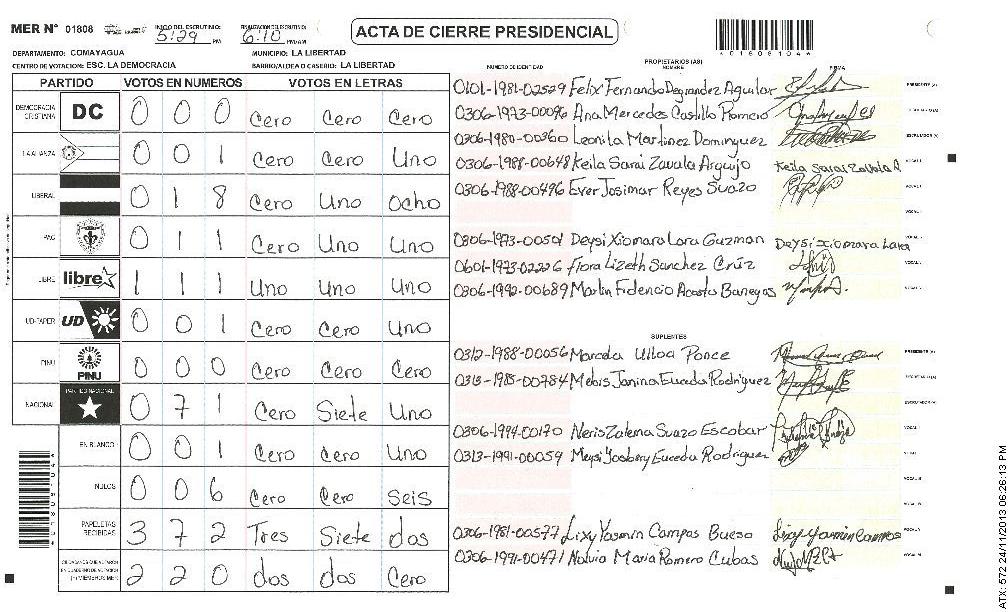 MER N° 01808 INICIO DEL ESCRUTINIO: 5:29 PM FINALIZACION DEL ESCRUTINIO: 6:10 PM/AM ACTA DE CIERRE PRESIDENCIAL
DEPARTAMENTO: COMAYAGUA MUNICIPIO: LA LIBERTAD
CENTRO DE VOTACION: ESC. LA DEMOCRACIA BARRIO/ALDEA O CASERIO: LA LIBERTAD
PARTIDO VOTOS EN NUMEROS VOTOS EN LETRAS
DEMOCRACIA CRISTIANA DC 0 0 0 Cero Cero Cero
LA ALIANZA 0 0 1 Cero Cero Uno
LIBERAL 0 1 8 Cero Uno ocho
PAC 0 1 1 Cero Uno Uno
LIBRE libre 1 1 1 Uno Uno Uno
UD-FAPER UD 0 0 1 Cero Cero Uno
PINU PINU 0 0 0 Cero Cero Cero
NACIONAL PARTIDO NACIONAL 0 7 1 Cero Siete Uno
EN BLANCO 0 0 1 Cero Cero Uno
NULOS 0 0 6 Cero Cero Seis
PAPELETAS RECIBIDAS 3 7 2 Tres Siete dos
CIUDADANOS QUE VOTARON EN CUADERNO DE VOTACION (+) MIEMBROS MER 2 2 0 dos dos Cero
NUMERO DE IDENTIDAD PROPIETARIOS (AS) NOMBRE FIRMA
0101-1981-02529 Felix Fernando Degrandez Aguilar PRESIDENTE (A)
0306-1973-00096 Ana Mercedes Castillo Romero
0306-1980-00360 Leonila Martinez Dominguez ESCRUTADOR (A)
0306-1988-00648 Keila Sarai Zavala Arguijo Keila Sarai Zavala A. VOCAL I
0306-1988-00496 Ever Josimar Reyes Suazo
0306-1973-00501 Deysi Xiomara Lara Guzman Deysi Xiomara Lara
0601-1973-02226 Flora Lizeth Sanchez Cruz
0306-1990-00689 Marlin Fidencio Acosta Banegas
SUPLENTES
0312-1988-00056 Marcela Ulloa Ponce PRESIDENTE (A)
0313-1985-00784 Melvis Janina Euceda Rodriguez
0306-1994-00170 Neris Zalema Suazo Escobar
0313-1991-00059 Meysi Josbery Euceda Rodriguez
0306-1981-00577 Lixy Yasmin Campos Bueso Lixy Yasmin Campos
0306-1991-00471 Nolvia Maria Romero Cubas
ATX: 572 24/11/2013 06:26:13 PM